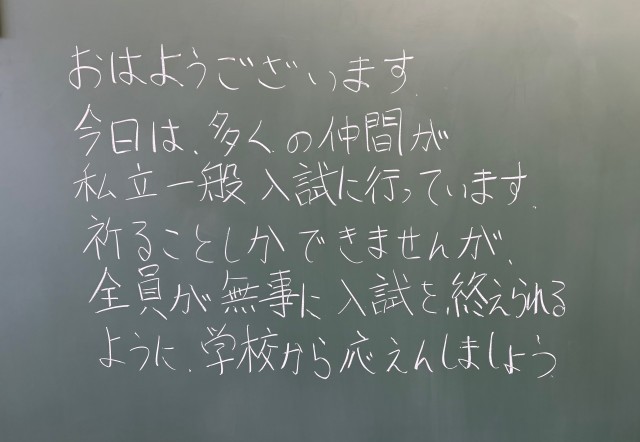 おはようございます.
今日は、多くの仲間が
私立一般入試に行っています.
祈ることしかできませんが、
全員が無事に入試を終えられる
ように、学校から応えんしましょう.